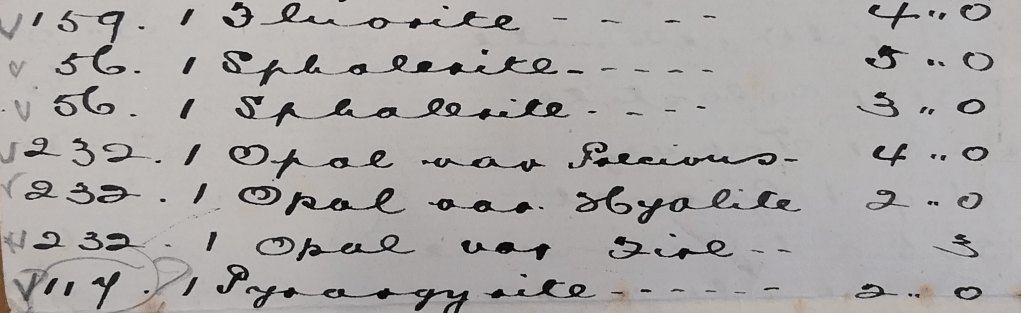 ✓159. 1 Fluorite - - - - 4 " 0
✓ 56. 1 Sphalerite - - - - - 5 " 0
✓ 56. 1 Sphalerite - - - - 3 " 0
✓232. 1 Opal var Precious - 4 " 0
✓232. 1 Opal var. Hyalite 2 " 0
✓232. 1 Opal var Fire - - 3
✓117. ? 1 Pyrargyrite - - - - - - 2 " 0